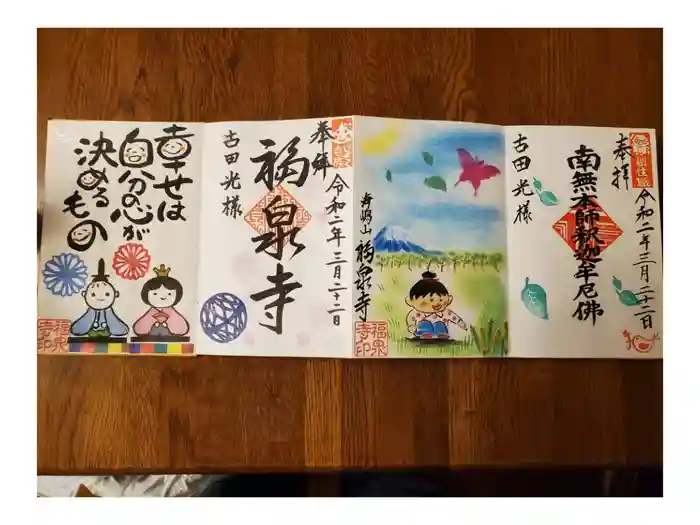 奉拝
令和二年三月二十二日
南無本師釈迦牟尼佛
古田光様
福泉寺
福泉寺印
奉拝
令和二年三月二十二日
福泉寺
古田光様
幸せは
自分の心が
決める
もの
福泉寺印